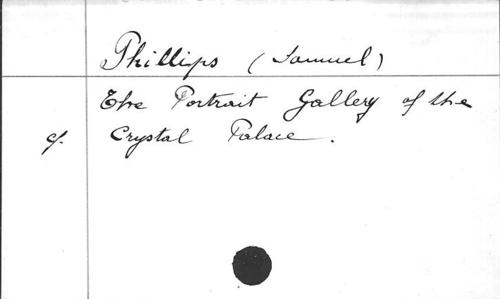 Phillips (Samuel)
The Portrait Gallery of the
cf. Crystal Palace.